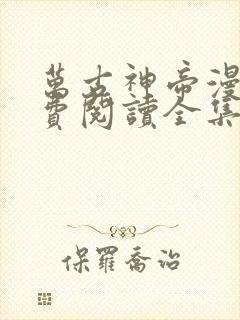 萬古神帝漫
費閱讀全集
保羅喬治